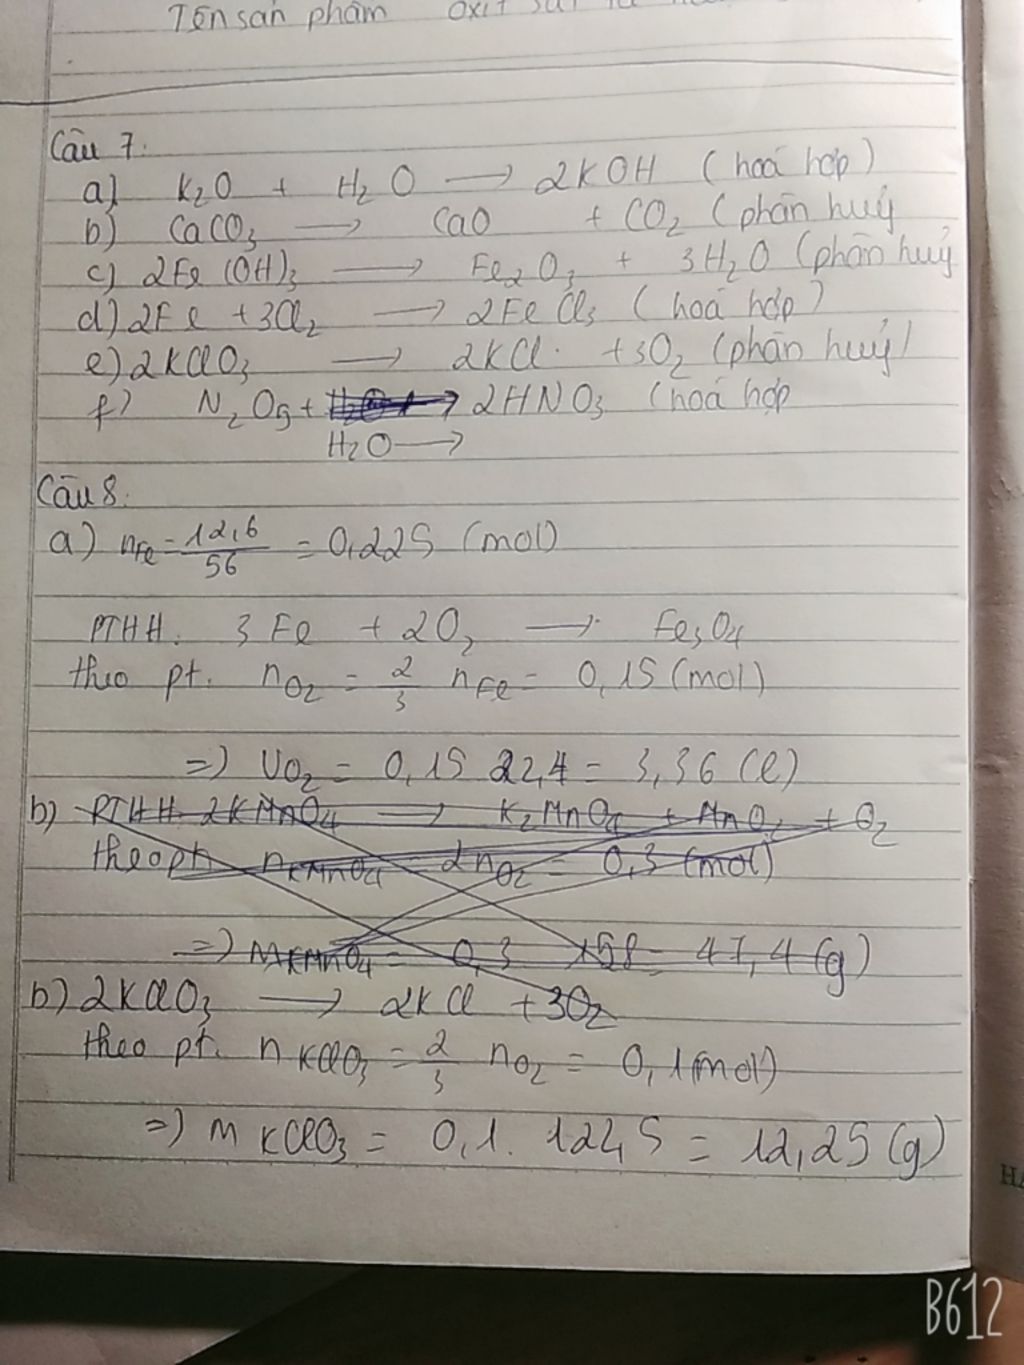 Tên sản phẩm oxit sắt từ
Câu 7:
a) K₂O + H₂O → 2KOH (hoá hợp)
b) CaCO₃ → CaO + CO₂ (phân huỷ
c) 2Fe(OH)₃ → Fe₂O₃ + 3H₂O (phân huỷ
d) 2Fe + 3Cl₂ → 2FeCl₃ (hoá hợp)
e) 2KClO₃ → 2KCl + 3O₂ (phân huỷ)
f) N₂O₅ + H₂O → 2HNO₃ (hoá hợp
H₂O →
Câu 8:
a) nFe = 12,6/56 = 0,225 (mol)
PTHH: 3Fe + 2O₂ → Fe₃O₄
theo pt: nO₂ = 2/3 nFe = 0,15 (mol)
=) VO₂ = 0,15 22,4 = 3,36 (l)
b) PTHH 2KMnO₄ → K₂MnO₄ + MnO₂ + O₂
theo pt: nKMnO₄ = 2nO₂ = 0,3 (mol)
=) mKMnO₄ = 0,3 158 = 47,4 (g)
b) 2KClO₃ → 2KCl + 3O₂
theo pt: nKClO₃ = 2/3 nO₂ = 0,1 (mol)
=) mKClO₃ = 0,1. 122,5 = 12,25 (g)
B612